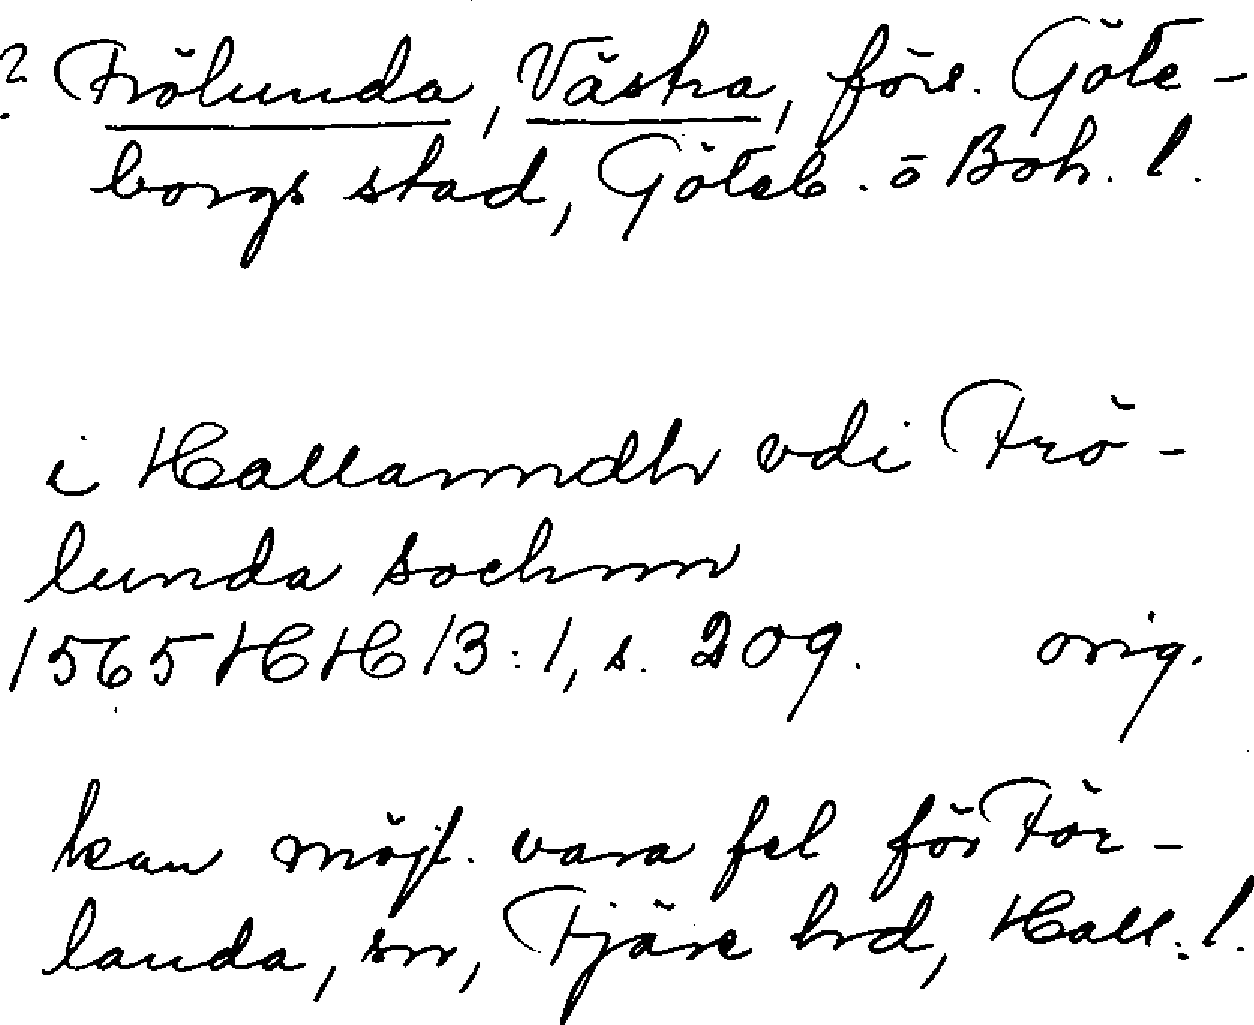 ? Frölunda, Västra, förs. Göte-
borgs stad, Göteb. o Boh. l.
i Hallanndh vdi Frö-
lunda sochnn
1565 HH 13:1, s. 209. orig.
kan möjl. vara fel för För-
landa, sn, Fjäre hd, Hall. l.